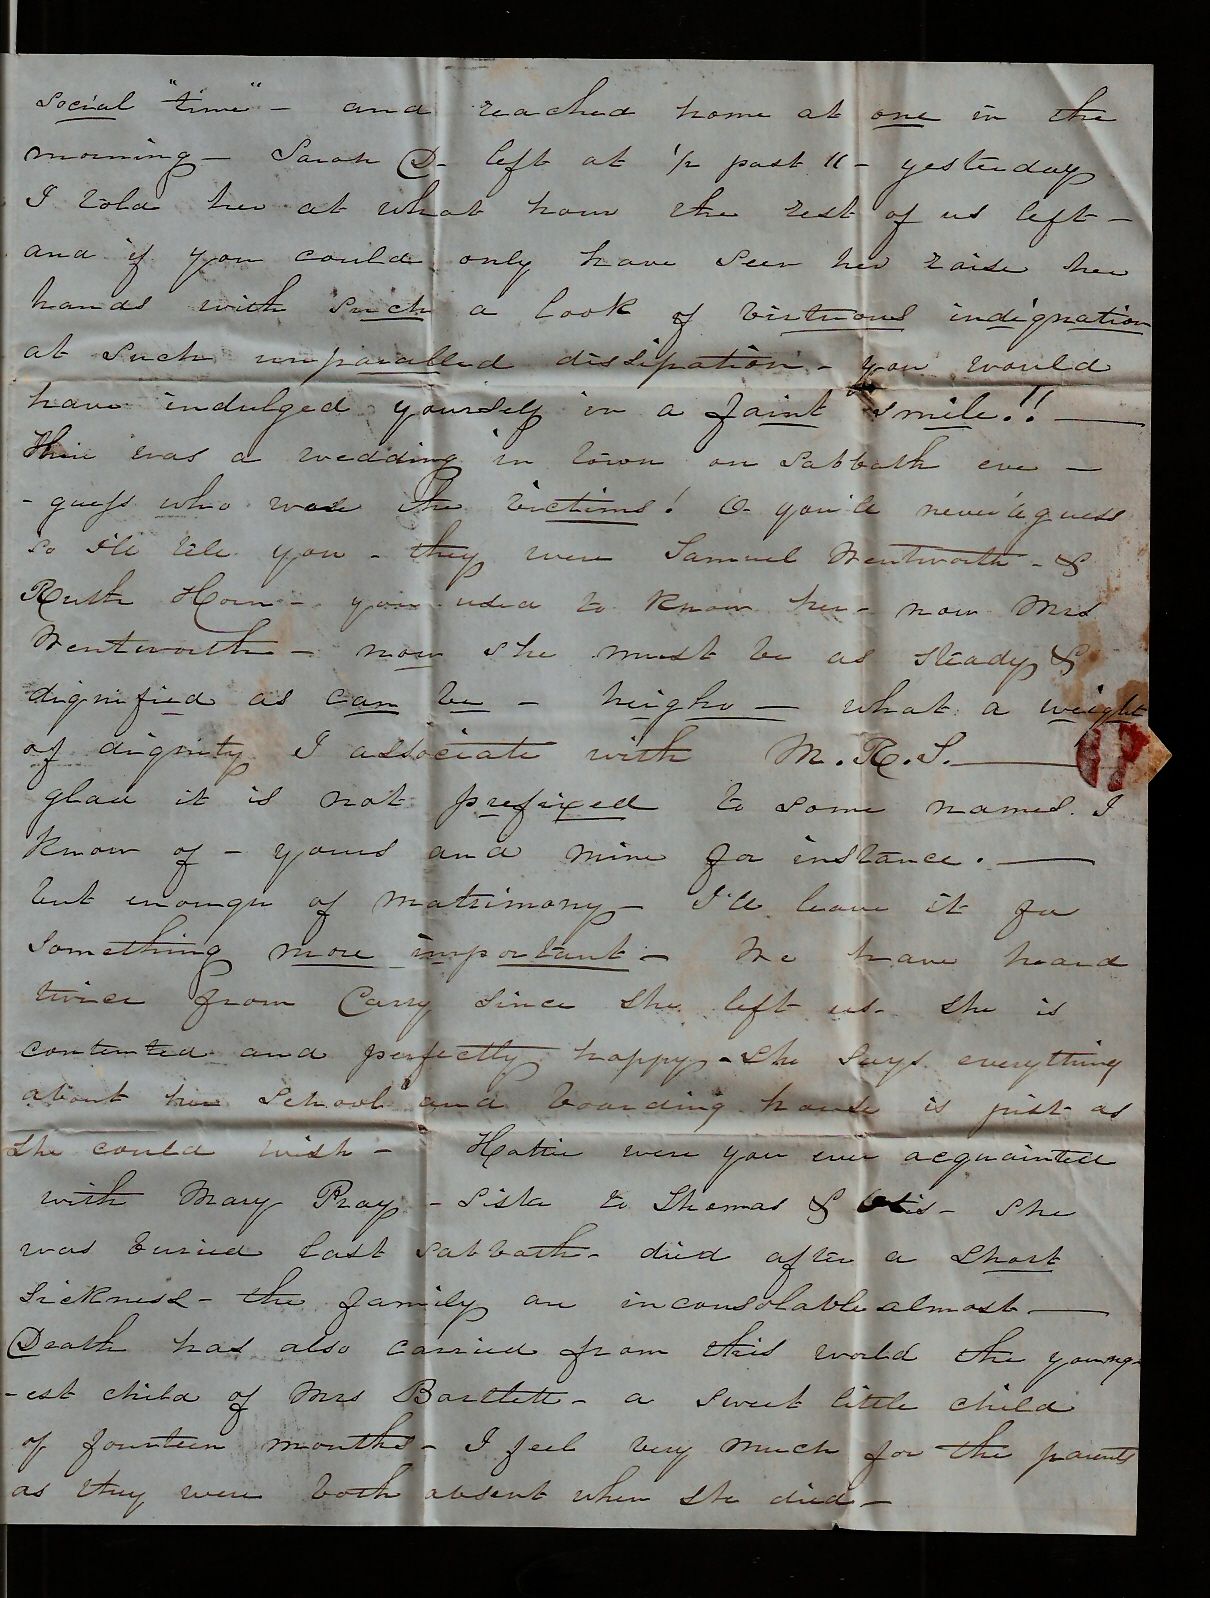 social "time" - and reached home at one in the
morning - Sarah D- left at 1/2 past 11 - yesterday
I told her at what hour the rest of us left -
and if you could only have seen her raise her
hands with such a look of virtuous indignation
at such unparalled dissipation - you would
have indulged yourself in a faint smile!! —
There was a wedding in town on Sabbath eve -
- guess who was the victims! O you'll never guess
so I'll tell you - they were Samuel Wentworth - &
Ruth Horn - you used to know her - now Mrs
Wentworth - now she must be as steady &
dignified as can be - heigho - what a weight
of dignity I associate with M.R.S. —
glad it is not prefixed to some names I
know of - yours and mine for instance. —
but enough of matrimony - I'll leave it for
something more important - We have heard
twice from Carry since she left us - she is
contented and perfectly happy - she says everything
about her school and boarding house is just as
she could wish - Hattie were you ever acquainted
with Mary Pray - sister to Thomas & Otis - she
was buried last Sabbath - died after a short
sickness - the family are inconsolable almost —
Death has also carried from this world the young-
-est child of Mrs Bartlett - a sweet little child
of fourteen months - I feel very much for the parents
as they were both absent when she died -